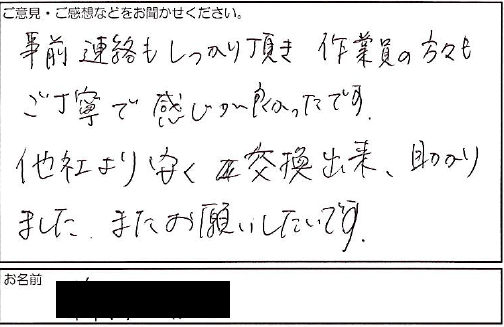 ご意見・ご感想などをお聞かせください。
事前連絡もしっかり頂き 作業員の方々も
ご丁寧で感じが良かったです。
他社より安く交換出来、助かり
ました。またお願いしたいです。
お名前